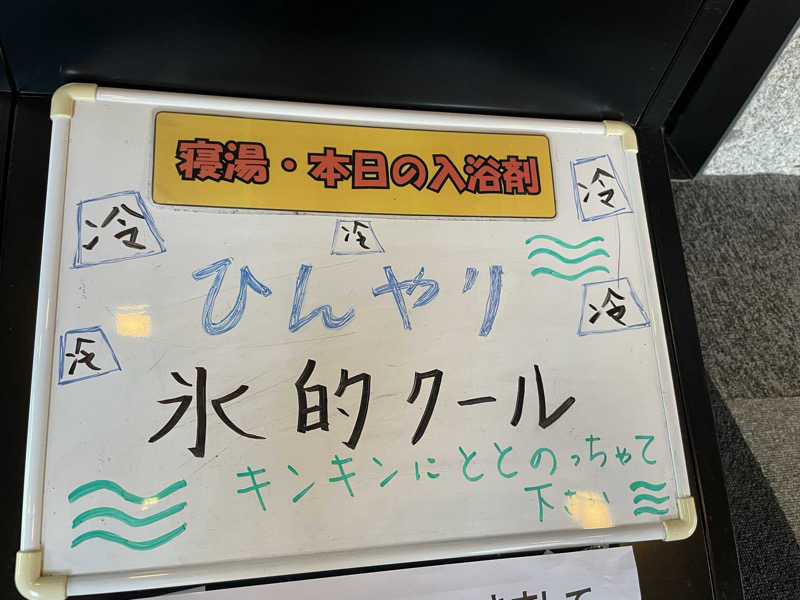 寝湯・本日の入浴剤
冷
冷
冷
ひんやり
冷
冷
氷的クール
キンキンにととのっちゃて
下さい